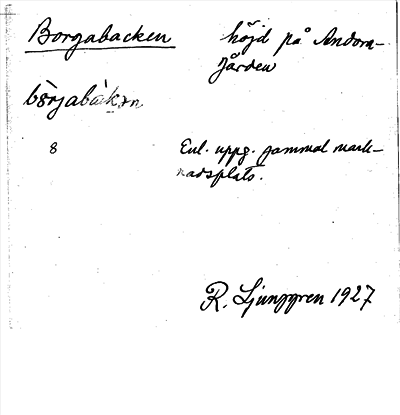 Borgabacken
höjd på Andorra-
gården
bòrjabàkən
8
Enl. uppg. gammal mark-
nadsplats.
R. Ljunggren 1927